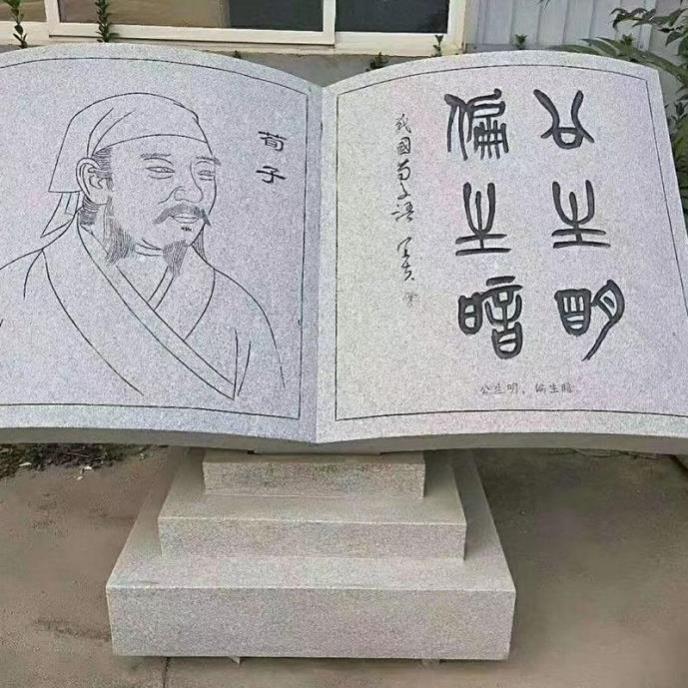 荀子
公生明
偏生暗
战国荀子语
公生明，偏生暗